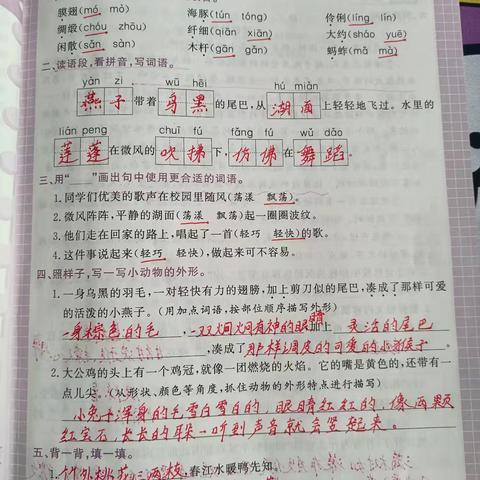 膜翅(mó, mò) 海豚(tún tóng) 伶俐(líng lín)
绸缎(chóu zhōu) 纤细(qiān xiān) 大约(shāo yuē)
闲散(sǎn sàn) 木杆(gān gǎn) 蚂蚱(mǎ mà)
二、读语段,看拼音,写词语。
yàn zi wū hēi hú miàn
燕子带着乌黑的尾巴,从湖面上轻轻地飞过。水里的
lián peng chuī fú fǎng fú wǔ dǎo
莲蓬在微风的吹拂下,仿佛在舞蹈。
三、用“____”画出句中使用更合适的词语。
1. 同学们优美的歌声在校园里随风(荡漾 飘荡)。
2. 微风阵阵,平静的湖面(荡漾 飘荡)起一圈圈波纹。
3. 他们走在回家的路上,唱起了一首(轻巧 轻快)的歌。
4. 这件事说起来(轻巧 轻快),做起来可不容易。
四、照样子,写一写小动物的外形。
1. 一身乌黑的羽毛,一对轻快有力的翅膀,加上剪刀似的尾巴,凑成了那样可爱
的活泼的小燕子。(用加点词语,按部位顺序描写外形)
一身棕色的毛,一双炯炯有神的眼睛加上灵活的尾巴
,凑成了那样调皮的可爱的小猴子
2. 大公鸡的头上有一个鸡冠,就像一团燃烧的火焰。它的嘴是黄色的,还带有一
点儿尖。(从形状、颜色等角度,抓住动物的外形特点进行描写)
小兔子浑身的毛雪白雪白的,眼睛红红的,像两颗
红宝石,长长的耳朵一听到声音就会竖起来。
五、背一背,填一填。
1. 竹外桃花三两枝,春江水暖鸭先知。